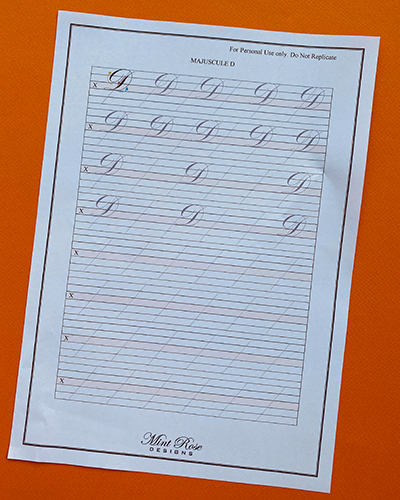 For Personal Use only. Do Not Replicate
MAJUSCULE D
x D D D D D
x D D D D D
x D D D
x D D D
x
x
x
x
Mint Rose
DESIGNS